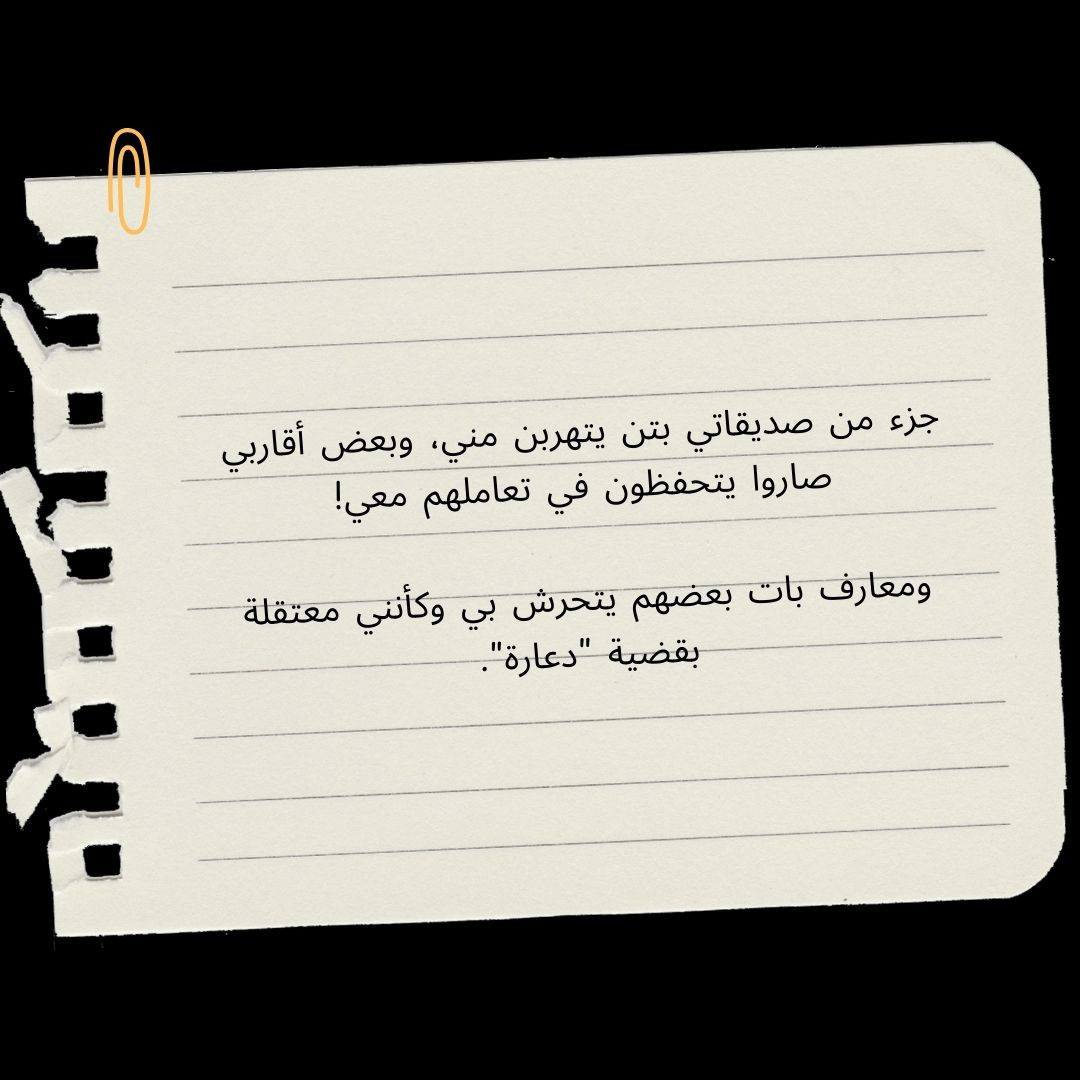 جزء من صديقاتي بتن يتهربن مني، وبعض أقاربي
صاروا يتحفظون في تعاملهم معي!
ومعارف بات بعضهم يتحرش بي وكأنني معتقلة
بقضية "دعارة".